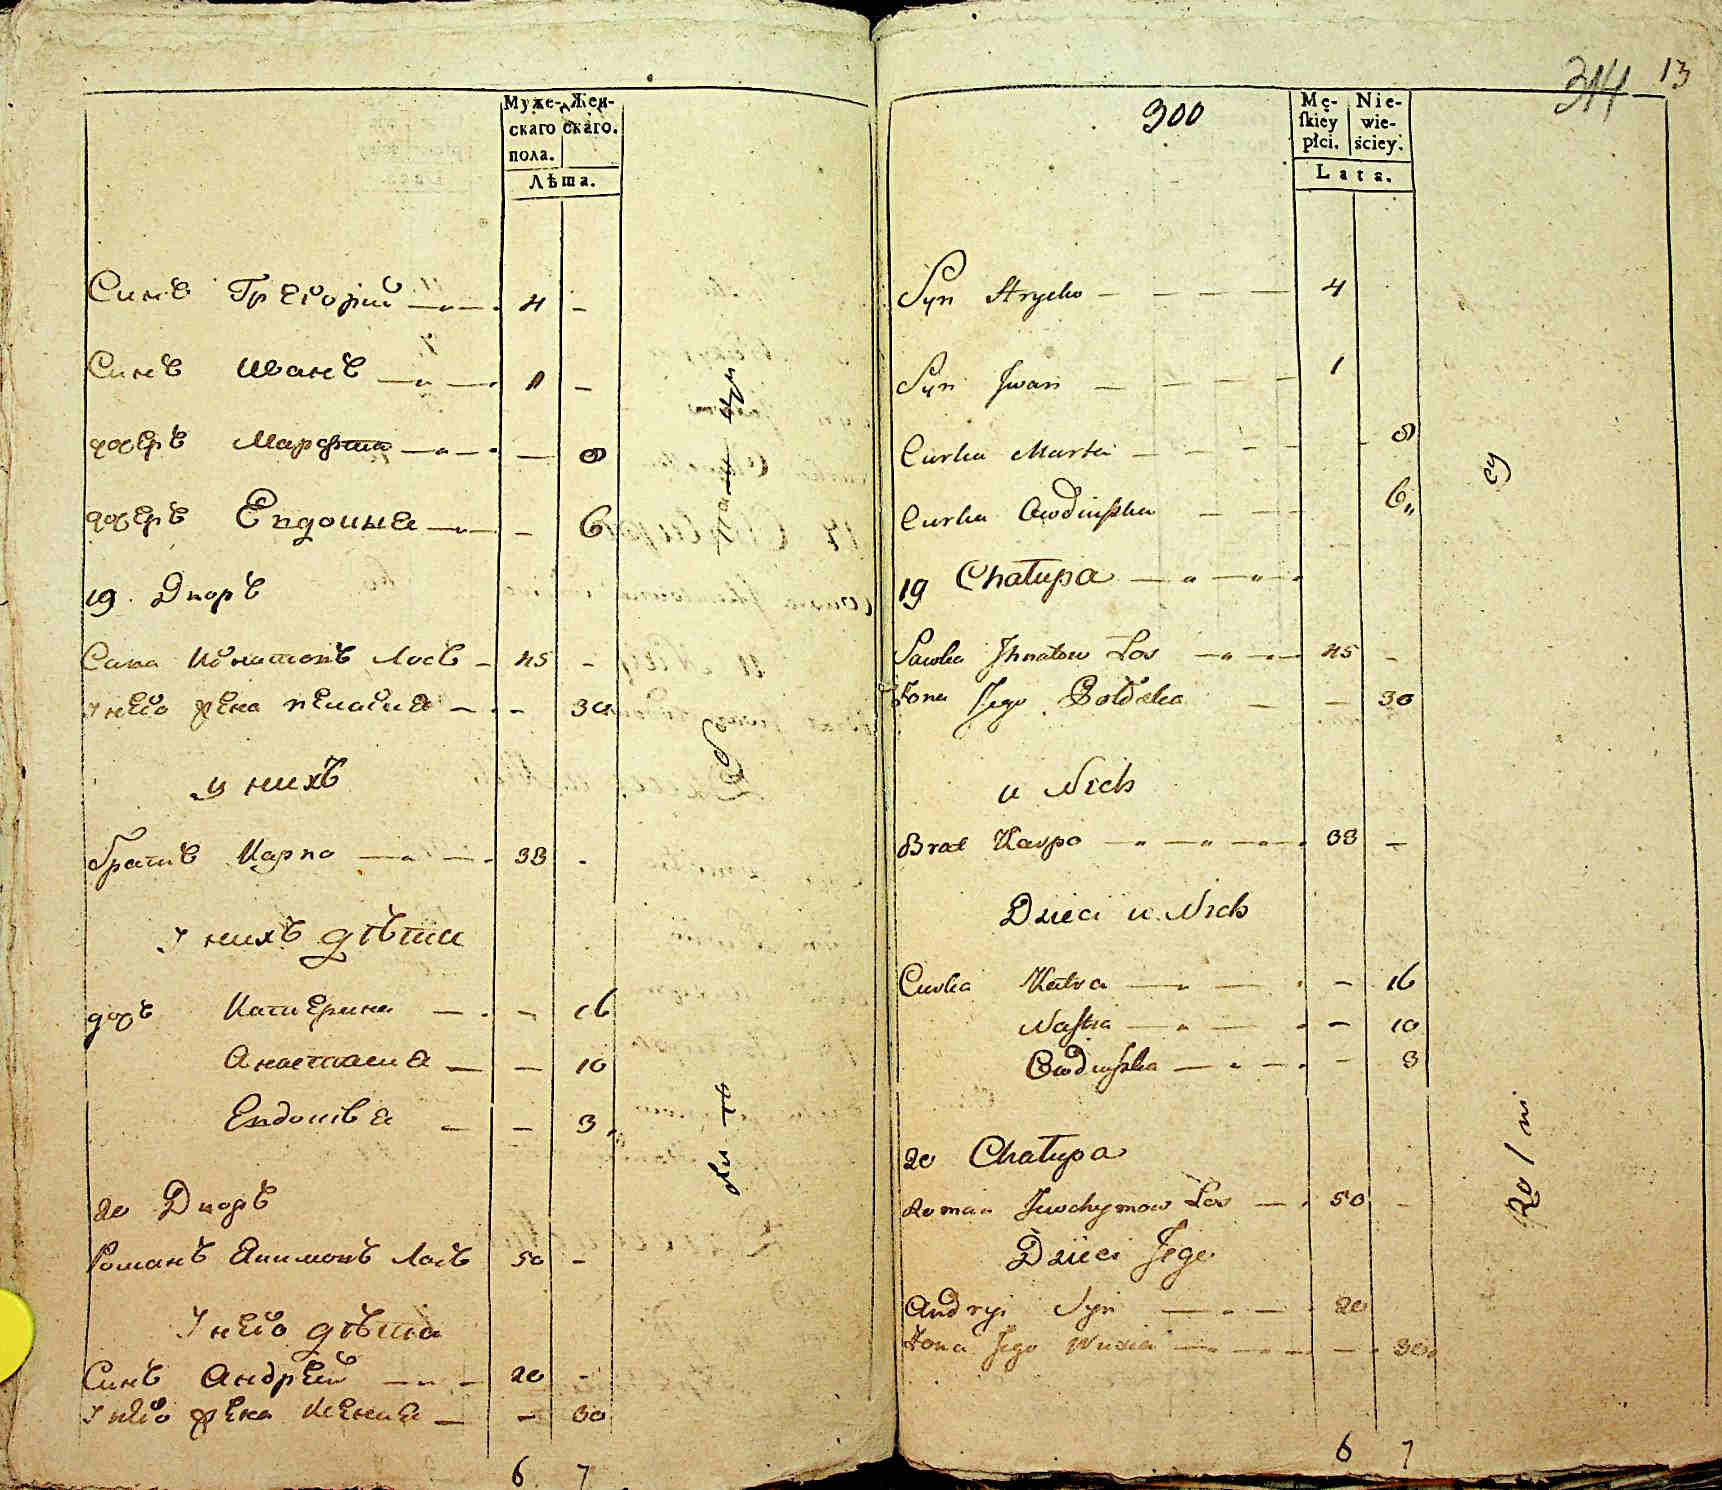 Муже- Жен-
скаго скаго.
пола.
Лѣта.
Синъ Грегорий 4 -
Синъ Иванъ 1 -
дочеръ Марфта - 8
дочеръ Евдоция - 6
19. Дворъ
Сава Игнатовъ Лосъ - 45 -
У него жена Пелагия - - 30
у нихъ
братъ Карпо 38 -
У нихъ дѣти
доч Катерина - - 16
Анастасия - - 10
Евдокия - - 3
20 Дворъ
Романъ Якимовъ Лосъ 50 -
У него дѣти
Синъ Андрей 20 -
У него жена Ксения - - 30
6 7
314 13
300
Mę- Nie-
ſkiey wie-
płci. ściey.
Lata.
Syn Hrycko 4
Syn Jwan 1
Curka Marta - 8
Curka Awdiuſzka 6
19 Chałupa
Sawka Jhnatow Los 45 -
Żona Jego Połdzka - 30
u Nich
Brat Karpo 38 -
Dzieci u Nich
Curka Katra - 16
Naſtia - 10
Awdiuſzka - 3
20 Chałupa
Roman Jwochymow Los 50 -
Dzieci Jego
Andryi Syn 20
Żona Jego - 30
6 7